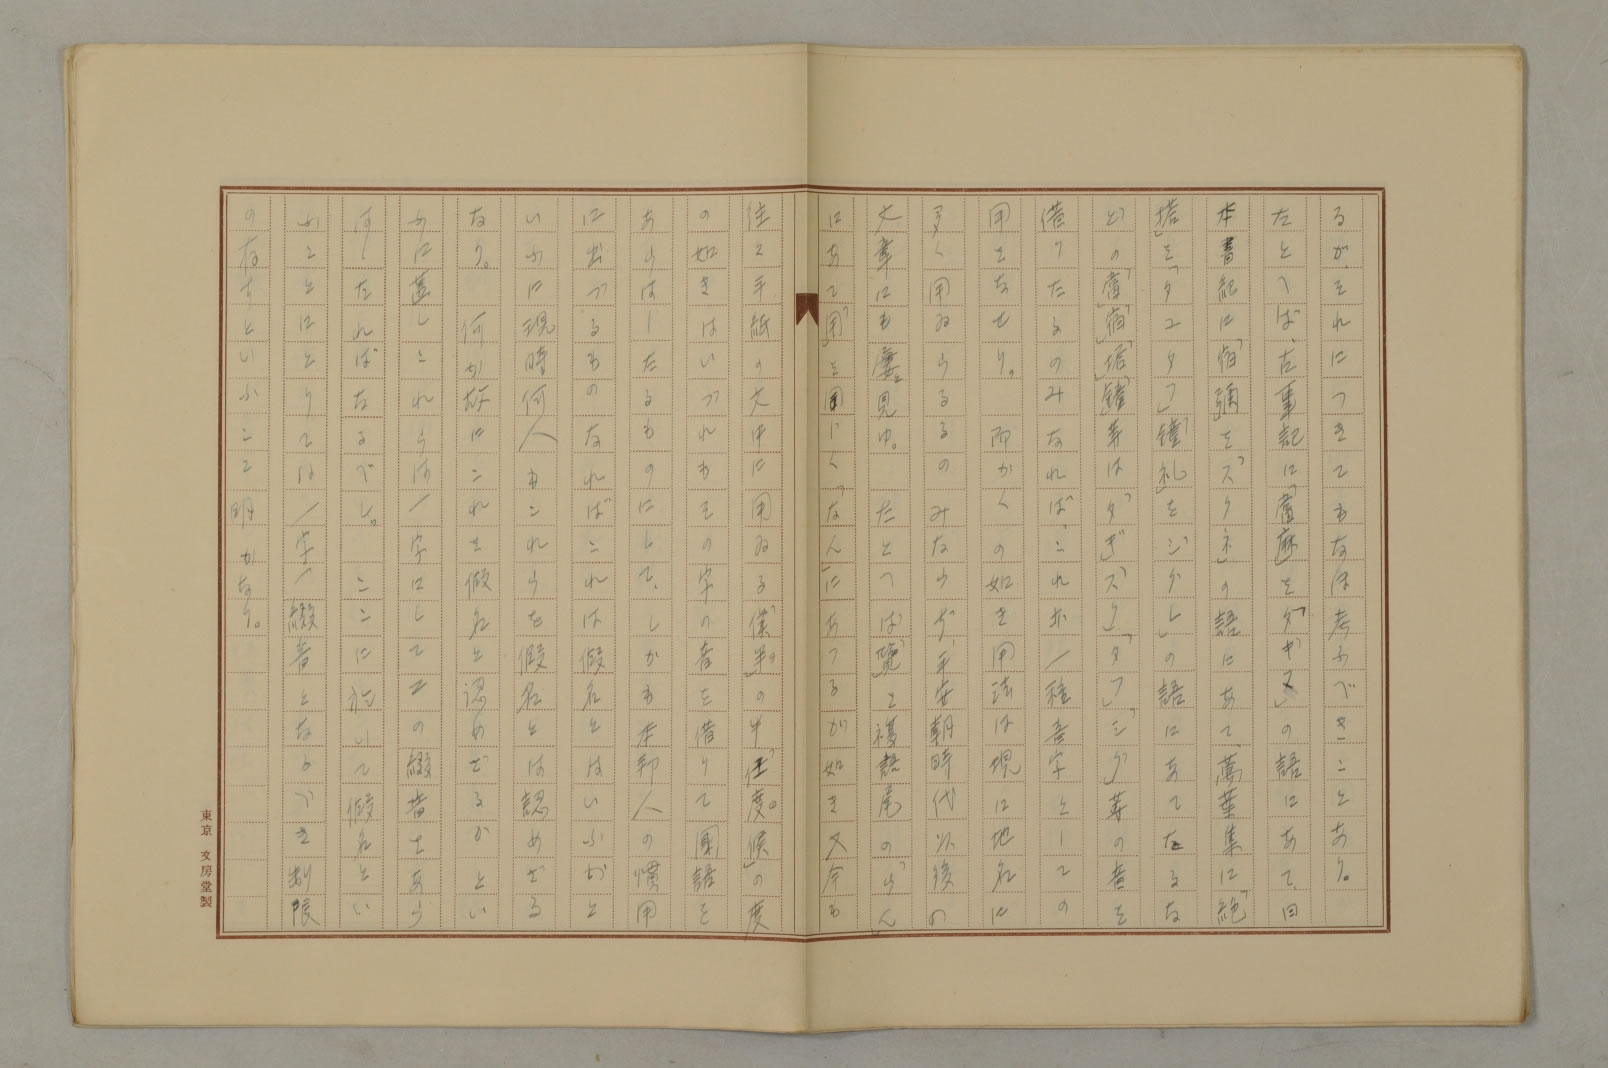 るが、それにつきてもなほ考ふべきことあり。
たとへば、古事記に「當麻」を「タギマ」の語にあて、日
本書紀に「宿彌」を「スクネ」の語にあて、萬葉集に「絶
塔」を「タユタフ」「鐘礼」を「シグレ」の語にあてたるな
どの「當」「宿」「塔」「鐘」等は「タギ」「スク」「タフ」「シグ」等の音を
借りたるのみなれば、これ亦一種音字としての
用をなせり。而かくの如き用法は現に地名に
多く用ゐらるるのみならず、平安朝時代以後の
文章にも屡〻見ゆ。たとへば「覽」を複語尾の「らん」
にあて「團」を「なん」にあつるが如き又今も
往々手紙の文中に用ゐる「僕半。」の半「住度。候」の度
の如きはいづれもその字の音を借りて國語を
あらはしたるものにして、しかも本邦人の慣用
に出づるものなればこれは假名とはいふがと
いふに現時何人もこれらを假名とは認めざる
なり。何が故にこれを假名と認めざるかとい
ふに蓋しこれらは一字にして二の綴音をあら
はしたればなるべし。ここに於いて假名とい
ふことにとりては一字一綴音となるべき制限
の存すといふこと明かなり。
東京 文房堂製